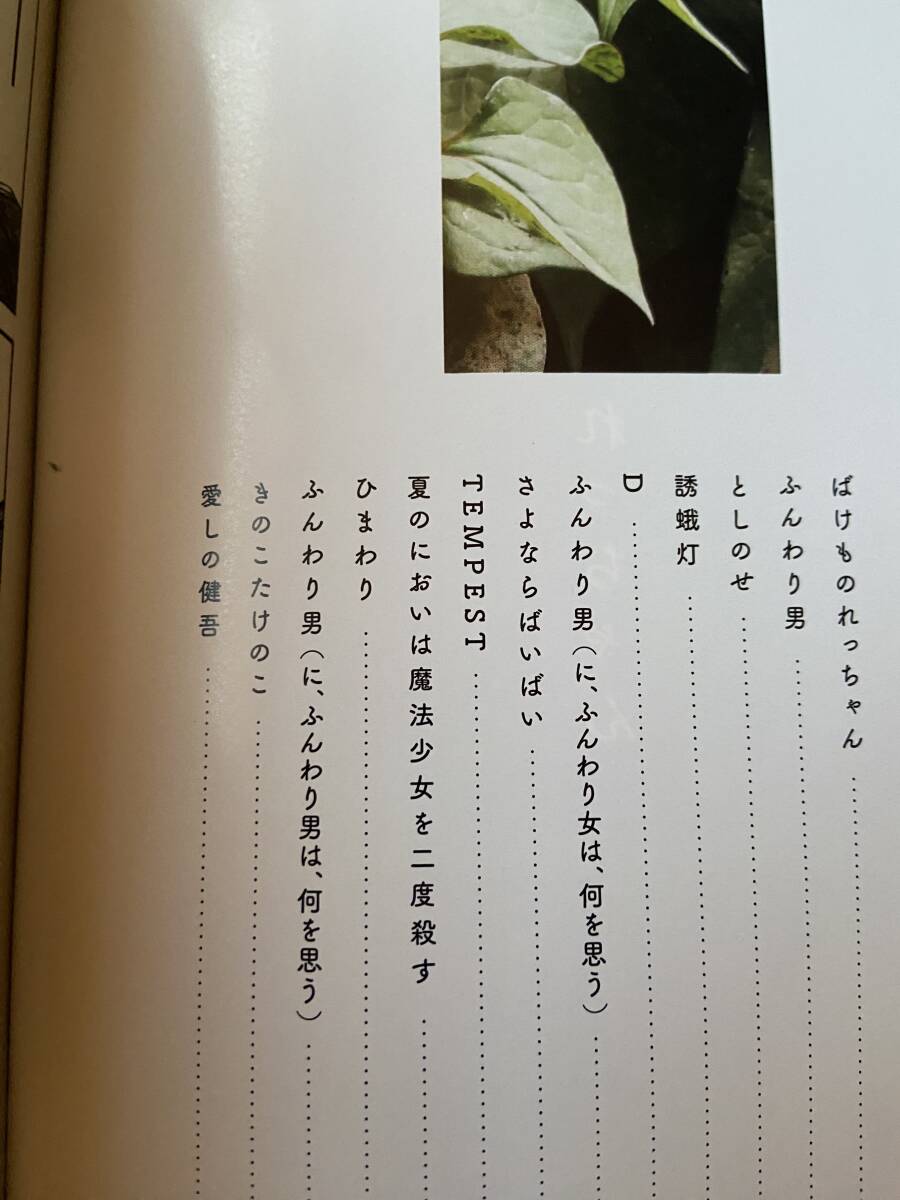 ばけものれっちゃん
ふんわり男
としのせ
誘蛾灯
D
ふんわり男（に、ふんわり女は、何を思う）
さよならばいばい
TEMPEST
夏のにおいは魔法少女を二度殺す
ひまわり
ふんわり男（に、ふんわり男は、何を思う）
きのこたけのこ
愛しの健吾